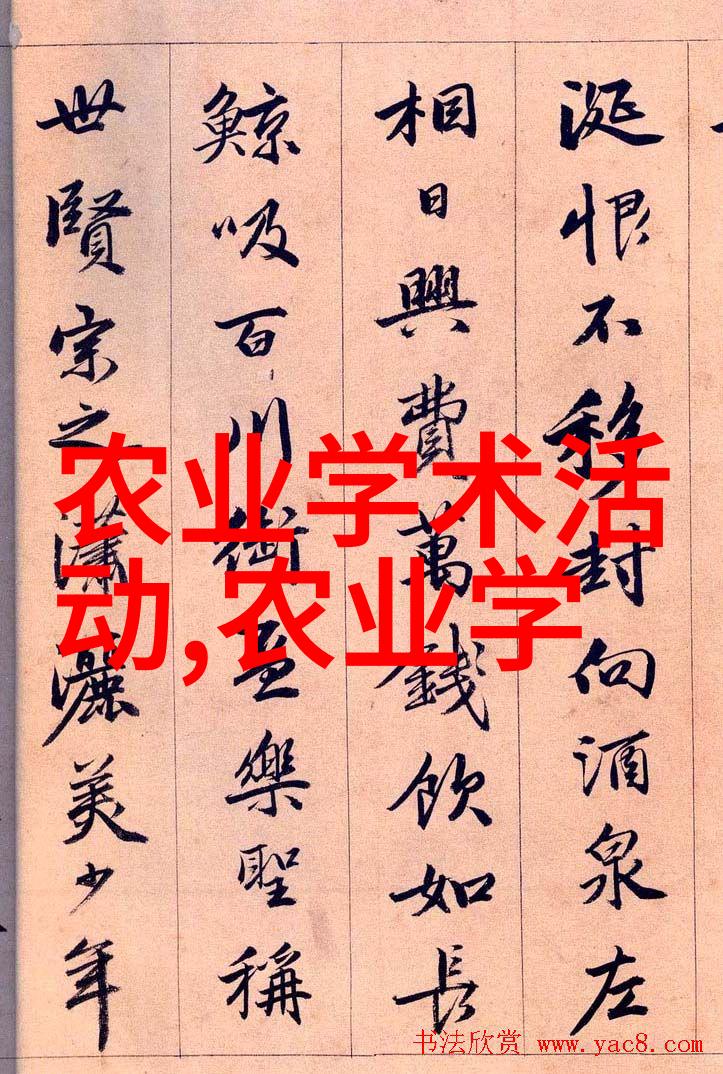 涎恨不移封向酒泉左
相日興費萬錢飲如長
鯨吸百川銜盃樂聖稱
世賢宗之瀟灑美少年
农业学术活
动,农业学
书法欣赏 www.yac8.com